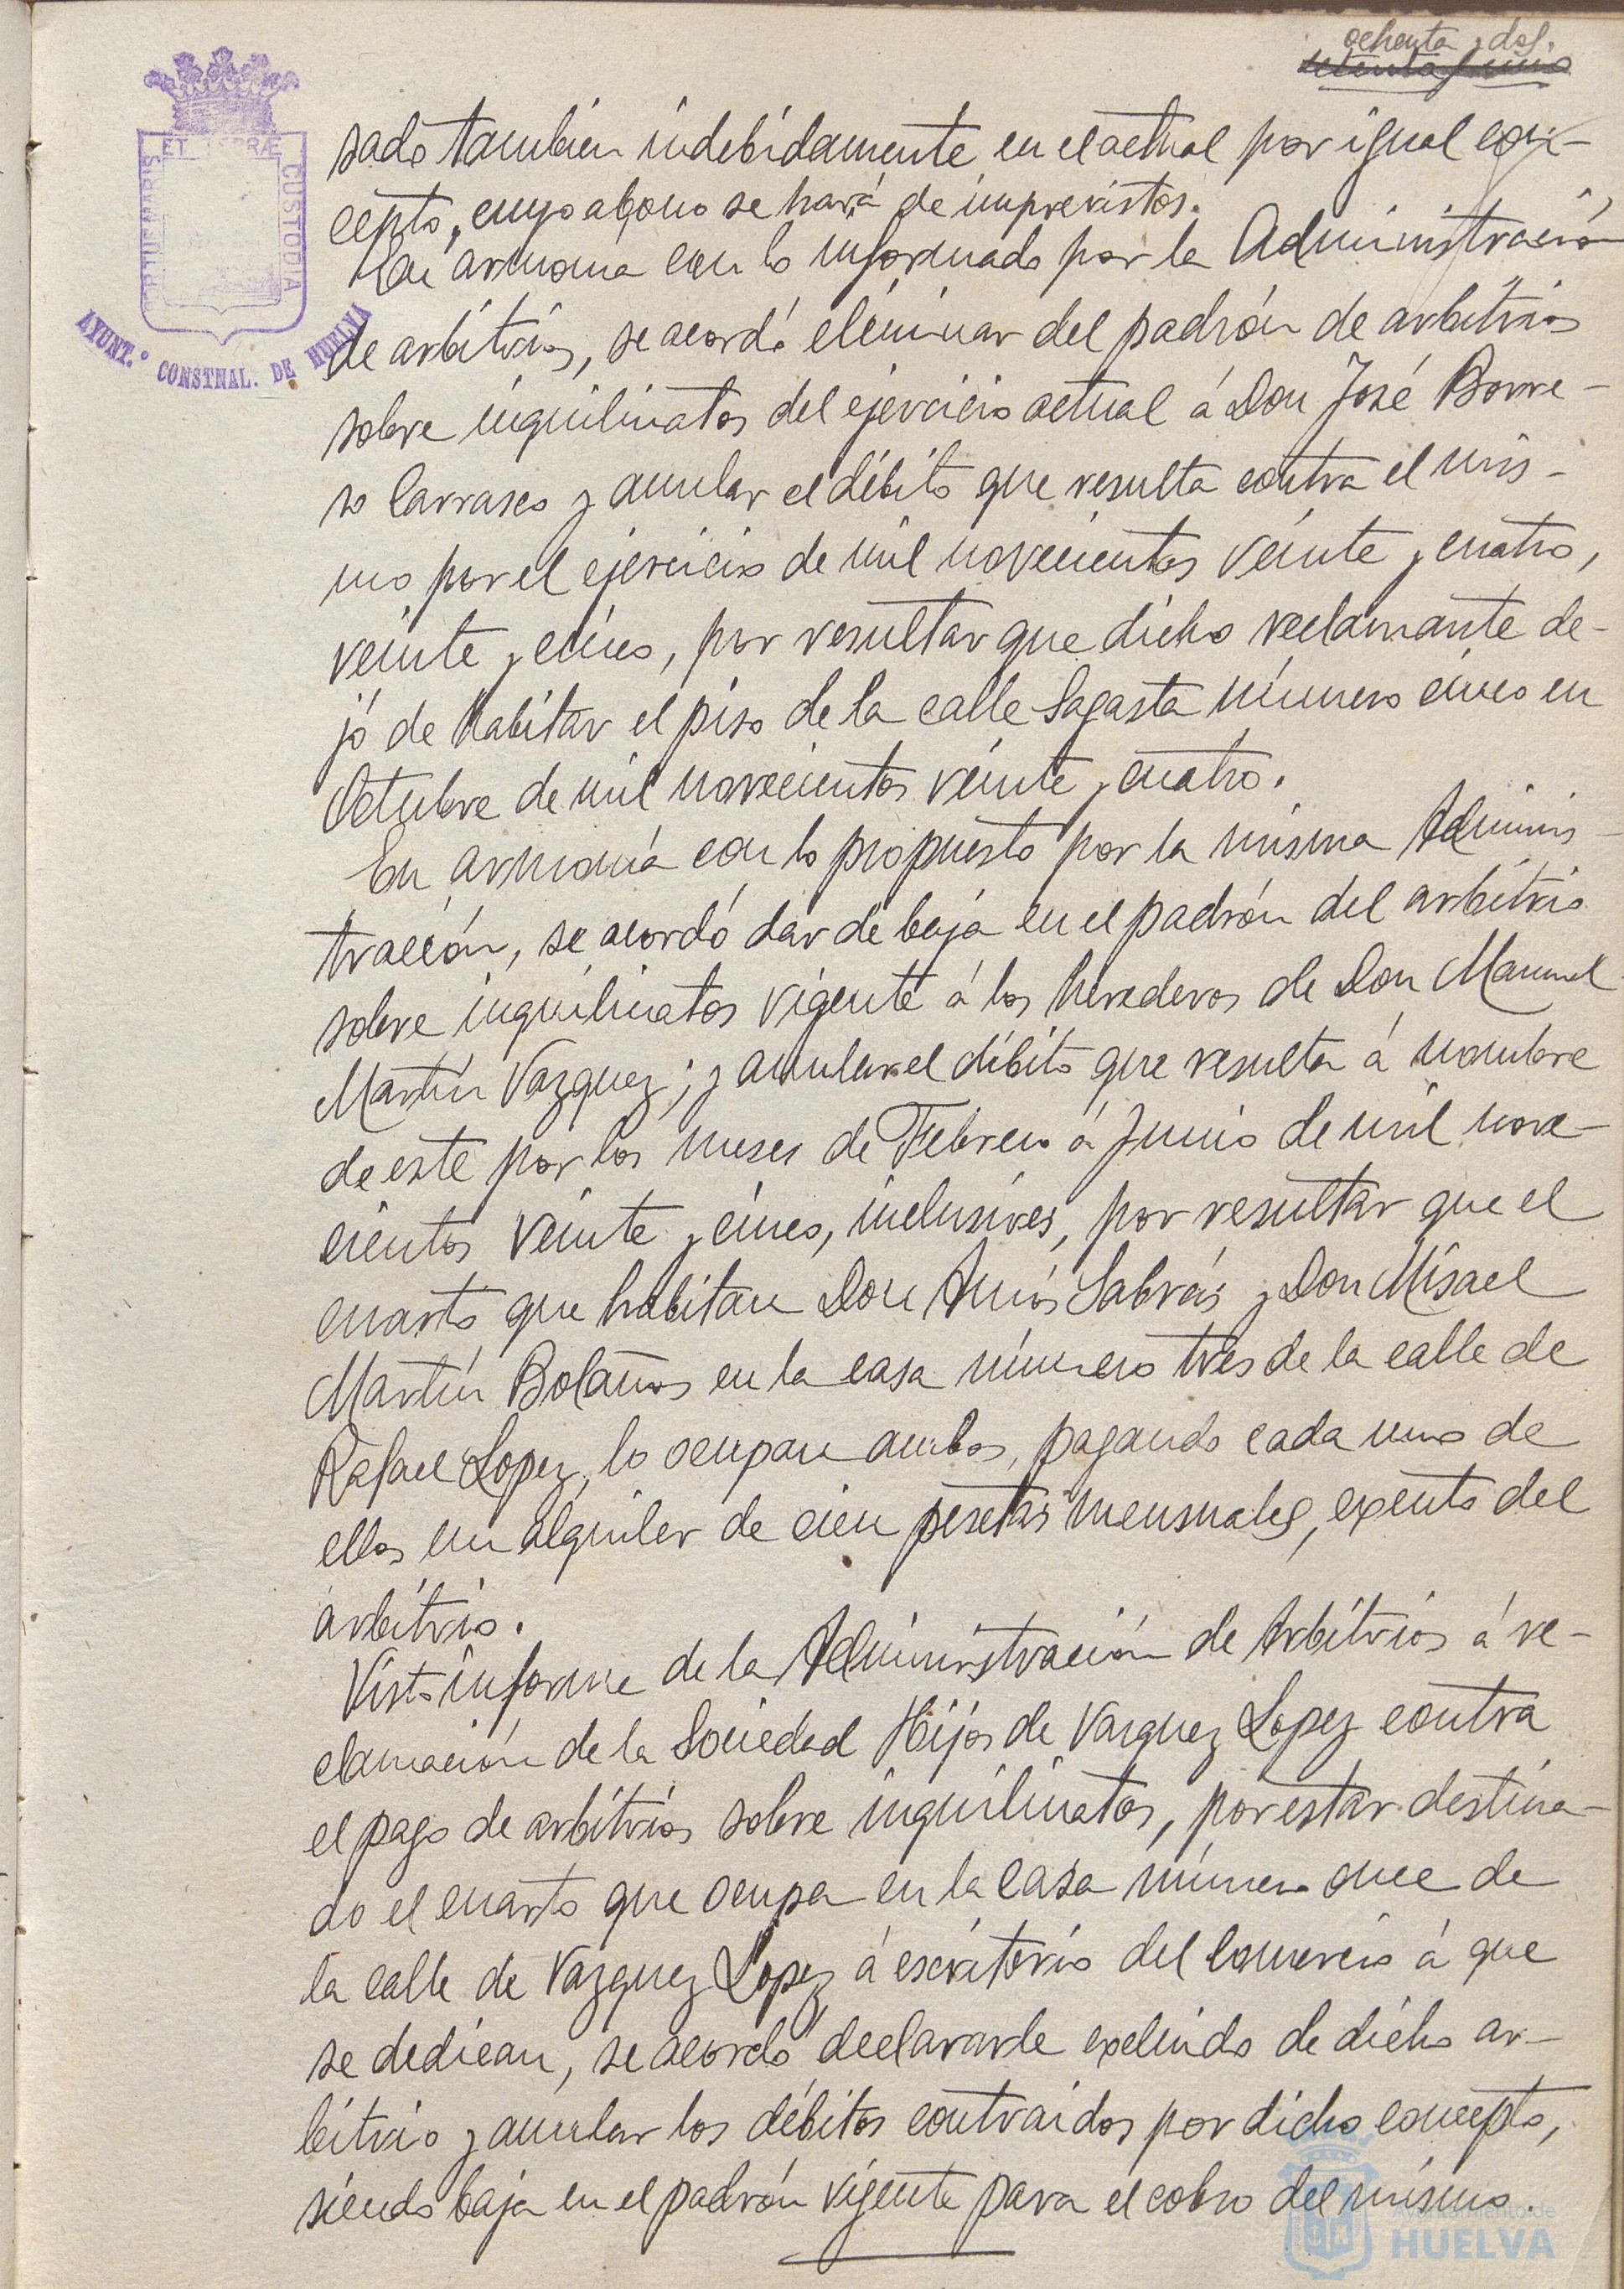 ochenta y dos.
setenta y uno
PORTUS MARIS
ET TERRÆ
CUSTODIA
AYUNT.º CONSTNAL. DE HUELVA
sado tambien indebidamente en el actual por igual con-
cepto, cuyo abono se hará de imprevistos.
En armonía con lo informado por la Administración
de arbitrios, se acordó eliminar del padrón de arbitrios
sobre inquilinatos del ejercicio actual á Don José Borre-
ro Carrasco y anular el débito que resulta contra el mis-
mo por el ejercicio de mil novecientos veinte y cuatro,
veinte y cinco, por resultar que dicho reclamante de-
jó de habitar el piso de la calle Sagasta número cinco en
Octubre de mil novecientos veinte y cuatro.
En armonía con lo propuesto por la misma Adminis-
tración, se acordó dar de baja en el padrón del arbitrio
sobre inquilinatos vigente á los herederos de Don Manuel
Martín Vazquez; y anular el débito que resulta á nombre
de este por los meses de Febrero á Junio de mil nove-
cientos veinte y cinco, inclusives, por resultar que el
cuarto que habitan Don Amós Sabrás y Don Misael
Martín Bolaños en la casa número tres de la calle de
Rafael Lopez, lo ocupan ambos, pagando cada uno de
ellos un alquiler de cien pesetas mensuales, exento del
arbitrio.
Visto informe de la Administración de Arbitrios á re-
clamación de la Sociedad Hijos de Vazquez Lopez contra
el pago de arbitrios sobre inquilinatos, por estar destina-
do el cuarto que ocupa en la casa número once de
la calle de Vazquez Lopez á escritorio del comercio á que
se dedican, se acordó declararle excluido de dicho ar-
bitrio y anular los débitos contraidos por dicho concepto,
siendo baja en el padrón vigente para el cobro del mismo.
Ayuntamiento de
HUELVA